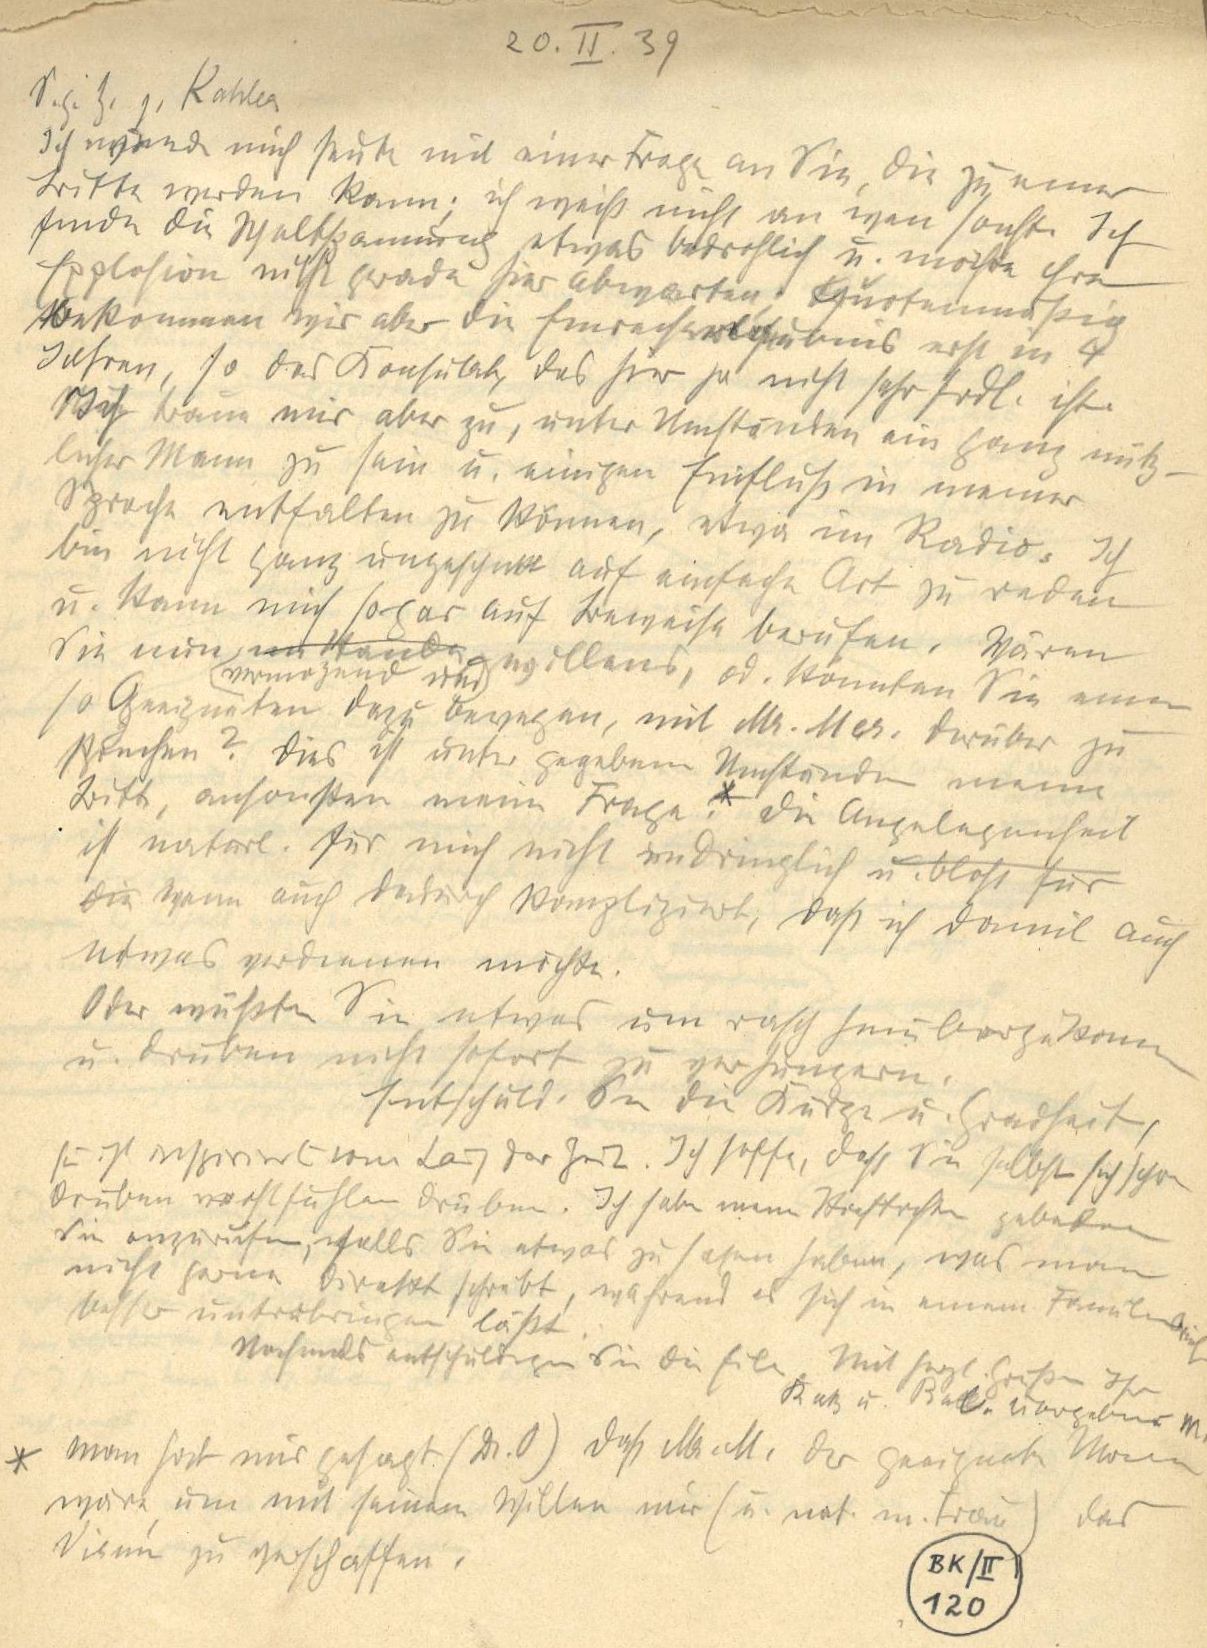 20. II. 39
S. g. H. g. Kahler
Ich wende mich heute mit einer Frage an Sie, die zu einer
Bitte werden kann; ich weiß nicht an wen sonst. Ich
finde die Weltspannung etwas bedrohlich u. möchte ihre
Explosion nicht grade hier abwarten. Quotenmäßig
bekommen wir aber die Einreiseerlaubnis erst in 4
Jahren, so das Konsulat, das hier ja nicht sehr frdl. ist.
Ich traue mir aber zu, unter Umständen ein ganz nütz-
licher Mann zu sein u. einigen Einfluß in meiner
Sprache entfalten zu können, etwa im Radio. Ich
bin nicht ganz ungeschickt auf einfache Art zu reden
u. kann mich sogar auf Beweise berufen. Wären
Sie nun imstande willens, od. könnten Sie einen
(vermögend und)
so Geeigneten dazu bewegen, mit Mr. Mer. darüber zu
sprechen? Dies ist unter gegebenen Umständen meine
Bitte, ansonsten meine Frage.* Die Angelegenheit
ist natürl. für mich nicht undringlich u. bloß für
die wenn auch dadurch kompliziert, daß ich damit auch
etwas verdienen möchte.
Oder wüßten Sie etwas um rasch hinüberzukommen
u. drüben nicht sofort zu verhungern.
Entschuld. Sie die Kürze u. Gradheit,
sie ist inspiriert vom Lauf der Zeit. Ich hoffe, daß Sie selbst sich schon
drüben wohlfühlen drüben. Ich habe meine Stieftochter gebeten
Sie anzurufen, falls Sie etwas zu sagen haben, was man
nicht gerne direkt schreibt, während es sich in einem Familienbrief
besser unterbringen läßt.
Nochmals entschuldigen Sie die Eile. Mit herzl. Grüßen Ihr
* Man hat mir gesagt (Dr. O) daß Mr. M. der geeignete Mann
wäre, um mit seinem Willen mir (u. nat. m. Frau) das
Visum zu verschaffen.
BK/II
120